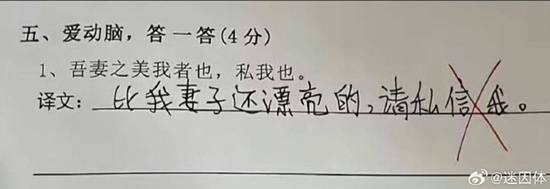 五、爱动脑，答一答(4分)
1、吾妻之美我者也，私我也。
译文：比我妻子还漂亮的，请私信我。
@迷因体